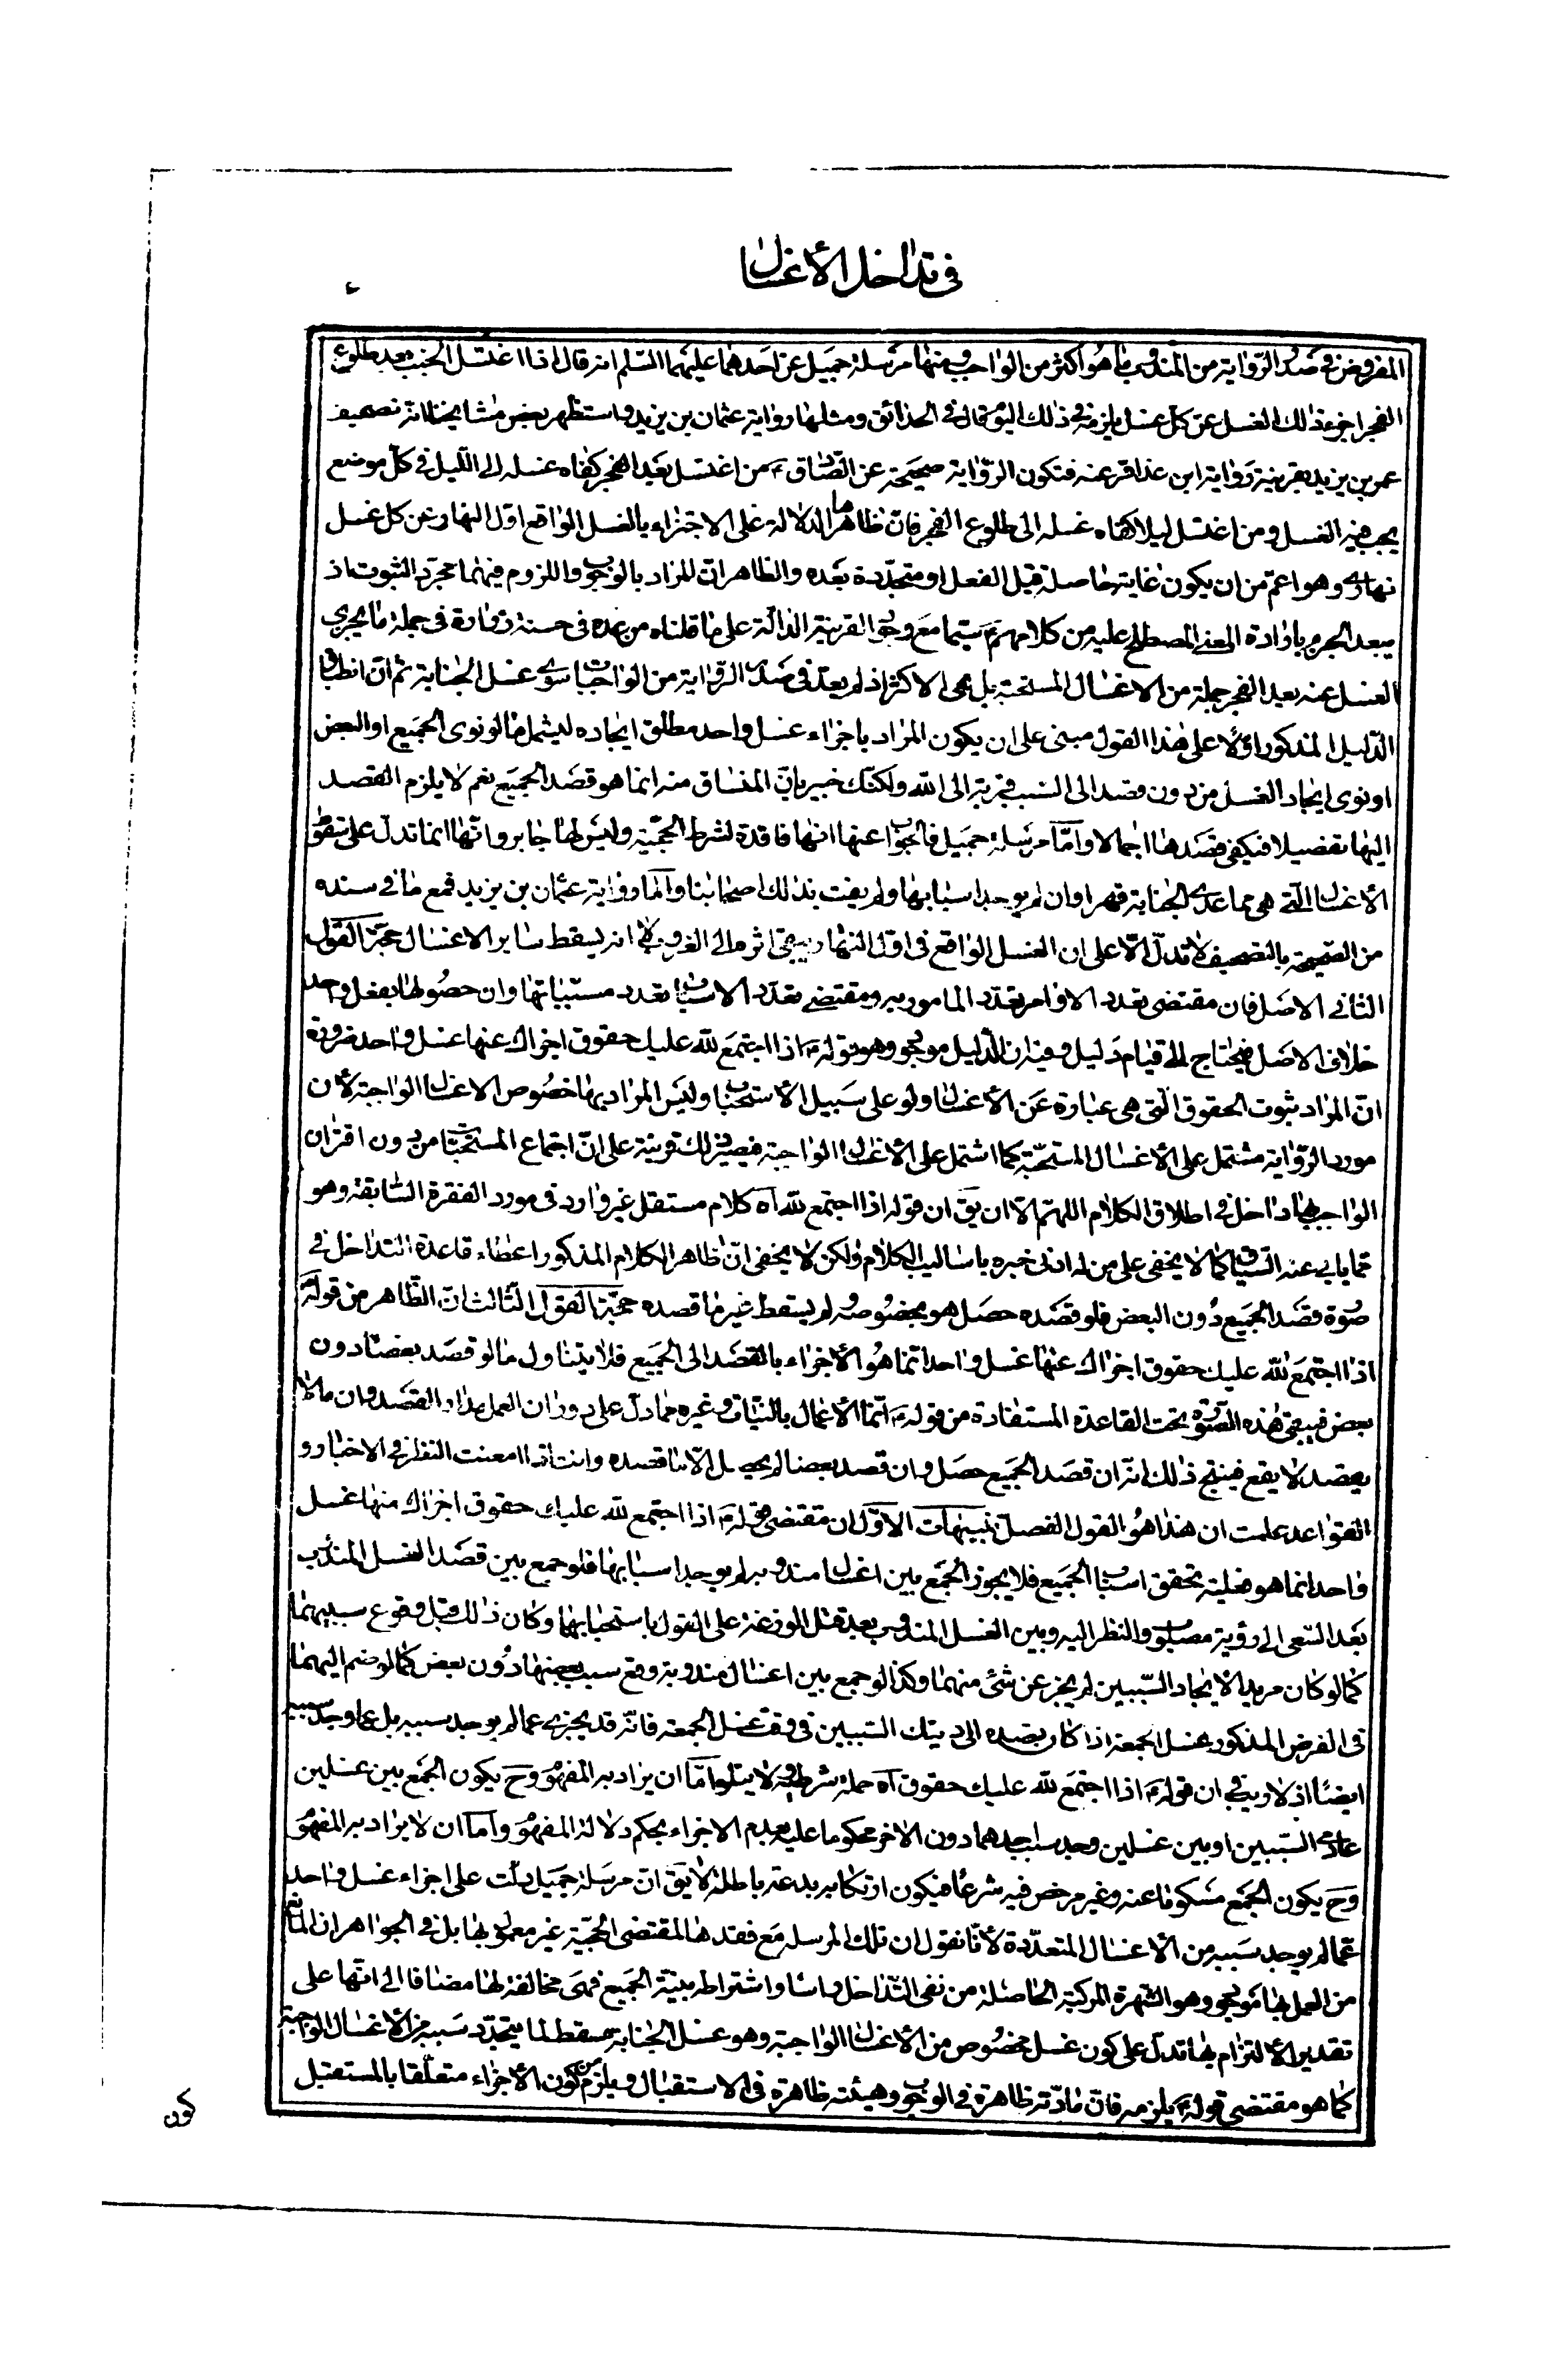 في تداخل الأغسال
المفروض في صدر الرّواية من المندوب ما هو أكثر من الواجب ومنها مرسلة جميل عن احدهما عليهما السّلم انه قال اذا اغتسل الجنب بعد طلوع
الفجر اجزء ذلك الغسل عن كلّ غسل يلزمه في ذلك اليوم قال في الحدائق ومثلها رواية عثمان بن يزيد واستظهر بعض مشايخنا انه تصحيف
عمر بن يزيد بقرينة رواية ابن عذافر عنه فتكون الرّواية صحيحة عن الصّادق ع من اغتسل بعد الفجر كفاه غسله الى اللّيل في كلّ موضع
يجب فيه الغسل ومن اغتسل ليلا كفاه غسله الى طلوع الفجر فانّ ظاهرها الدلالة على الاجتزاء بالغسل الواقع اوّل النهار عن كل غسل
نهارى وهو اعمّ من ان يكون غايته حاصلة قبل الفعل او متجدّدة بعده والظاهر انّ المراد بالوجوب واللزوم فيهما مجرّد الثبوت اذ
يبعد الجزم بارادة المعنى المصطلح عليه من كلامهم ع سيّما مع وجود القرينة الدالّة على ما قلناه من عده في حسنة زرارة في جملة ما يجزى
الغسل عنه بعد الفجر جملة من الاغسال المستحبّة بل هي الاكثر اذ لم يعدّ في صدر الرّواية من الواجبات سوى غسل الجنابة ثم انّ انطباق
الدّليل المذكور اوّلا على هذا القول مبنى على ان يكون المراد باجزاء غسل واحد مطلق ايجاده ليشمل ما لو نوى الجميع او البعض
او نوى ايجاد الغسل من دون قصد الى السّبب قربة الى الله ولكنّك خبير بانّ المنساق منه انما هو قصد الجميع نعم لا يلزم القصد
اليها تفصيلا فيكفى قصدها اجمالا وامّا مرسلة جميل فالجواب عنها انها فاقدة لشرط الحجّية وليس لها جابر وانّها انما تدلّ على سقوط
الأغسال الّتي هي مما عدى الجنابة قهرا وان لم يوجد اسبابها ولم يفت بذلك اصحابنا وامّا رواية عثمان بن يزيد فمع ما في سنده
من التصحيح بالتصحيف لا تدلّ الّا على ان الغسل الواقع في اوّل النّهار يبقى اثره الى الغروب لا انه يسقط ساير الاغسال حجّة القول
الثاني الاصل فان مقتضى تعدد الاوامر تعدّد المأمور به ومقتضى تعدّد الاسباب تعدد مسبّباتها وان حصولها بفعل واحد
خلاف الاصل فيحتاج الى قيام دليل وفيه ان الدّليل موجود وهو قوله ع اذا اجتمع لله عليك حقوق اجزاك عنها غسل واحد ضرورة
انّ المراد بثبوت الحقوق الّتي هي عبارة عن الأغسال ولو على سبيل الأستحباب وليس المراد بها خصوص الاغسال الواجبة لأن
مورد الرّواية مشتمل على الأغسال المستحبّة كما اشتمل على الأغسال الواجبة فيصير ذلك قرينة على انّ اجتماع المستحبّات من دون اقتران
الواجب بها داخل في اطلاق الكلام اللهمّ الّا ان يقّ ان قوله اذا اجتمع لله آه كلام مستقل غير وارد في مورد الفقرة السّابقة وهو
ممّا يأبى عنه السّياق كما لا يخفى على من له ادنى خبرة باساليب الكلام ولكن لا يخفى انّ ظاهر الكلام المذكور اعطاء قاعدة التداخل في
صورة قصد الجميع دون البعض فلو قصده حصل هو بخصوصه لم يسقط غير ما قصده حجّة القول الثّالث انّ الظّاهر من قوله ع
اذا اجتمع لله عليك حقوق اجزاك عنها غسل واحد انّما هو الأجزاء بالقصد الى الجميع فلا يتناول ما لو قصد بعضا دون
بعض فيبقى هذه الصّورة تحت القاعدة المستفادة من قوله ع انّما الأعمال بالنيّات وغيره مما دلّ على دوران العمل مدار القصد وان ما لا
يقصد لا يقع فينتج ذلك انّه ان قصد الجميع حصل وان قصد بعضا لم يحصل الّا ما قصده وانت اذا امعنت النظر في الاخبار و
القواعد علمت ان هذا هو القول الفصل تنبيهات الاوّل ان مقتضى قوله ع اذا اجتمع لله عليك حقوق اجزاك منها غسل
واحد انما هو فعلية تحقق اسباب الجميع فلا يجوز الجمع بين اغسال مندوبة لم يوجد اسبابها فلو جمع بين قصد الغسل المندوب
بعد السّعى الى رؤية مصلوب والنظر اليه وبين الغسل المندوب بعد قتل الوزغة على القول باستحبابها وكان ذلك قبل وقوع سببيهما
كما لو كان مريدا لايجاد السّببين لم يجز عن شئ منهما وكذا لو جمع بين اغسال مندوبة وقع سبب بعضها دون بعض كما لو ضم اليهما
في الفرض المذكور غسل الجمعة اذا كان بقصده الى ذينك السّببين في وقت غسل الجمعة فانّه قد يجزى عما لم يوجد سببه بل عما وجد سببه
ايضا اذ لا ريب في ان قوله ع اذا اجتمع لله عليك حقوق آه جملة شرطية ولا يخلو امّا ان يراد به المفهوم وح يكون الجمع بين غسلين
عادمى السّببين او بين غسلين وجد سبب احدهما دون الاخر محكوما عليه بعدم الاجزاء بحكم دلالة المفهوم وامّا ان لا يراد به المفهوم
وح يكون الجمع مسكوتا عنه وغير مرخص فيه شرعا فيكون ارتكابه بدعة باطلة لا يقّ انّ مرسلة جميل دلّت على اجزاء غسل واحد
عمّا لم يوجد سببه من الأغسال المتعدّدة لأنّا نقول ان تلك المرسلة مع فقدها لمقتضى الحجيّة غير معمول بها بل في الجواهر ان المانع
من العمل بها موجود وهو الشّهرة المركبة الحاصلة من نفى التّداخل رأسا واشتراطه بنيّة الجميع فهى مخالفة لها مضافا الى انّها على
تقدير الألتزام بها تدلّ على كون غسل مخصوص من الأغسال الواجبة وهو غسل الجنابة مسقط لما يتجدّد سببه من الأغسال الواجبة
كما هو مقتضى قوله ع يلزمه فانّ مادّته ظاهرة في الوجوب وهيئته ظاهرة في الاستقبال ويلزم من كون الأجزاء متعلّقا بالمستقبل
كون